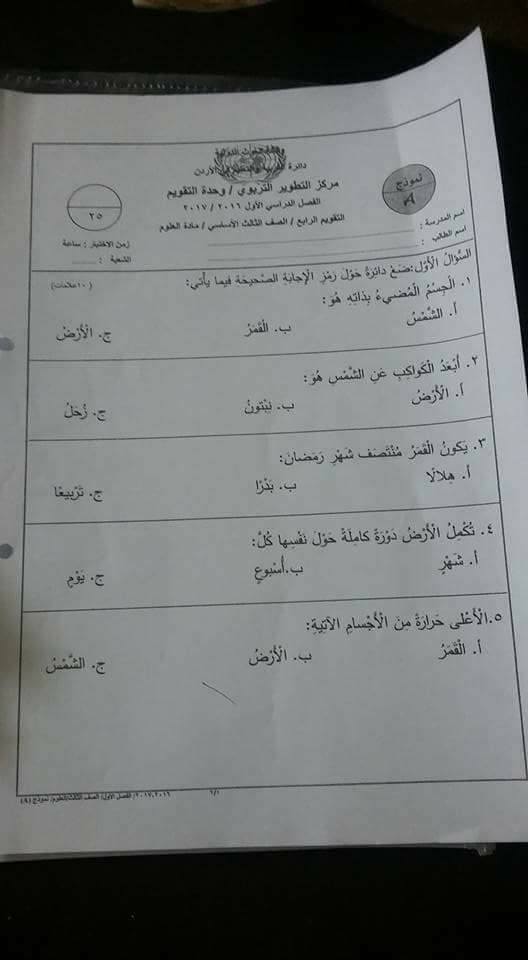 وكالة الغوث الدولية
دائرة التربية والتعليم / الأردن
مركز التطوير التربوي / وحدة التقويم
الفصل الدراسي الأول ٢٠١٦ / ٢٠١٧
التقويم الرابع / الصف الثالث الأساسي / مادة العلوم
نموذج
٢٥
اسم المدرسة :
اسم الطالب :
زمن الاختبار : ساعة
الشعبة :
السُّؤالُ الْأَوَّلُ: ضَعْ دائِرَةً حَوْلَ رَمْزِ الْإِجابَةِ الصَّحيحَةِ فيما يَأْتي: (١٠ علامات)
١. الْجِسْمُ الْمُضيءُ بِذاتِهِ هُوَ:
أ. الشَّمْسُ ب. الْقَمَرُ ج. الْأَرْضُ
٢. أَبْعَدُ الْكَواكِبِ عَنِ الشَّمْسِ هُوَ:
أ. الْأَرْضُ ب. نِبْتونُ ج. زُحَلُ
٣. يَكونُ الْقَمَرُ مُنْتَصَفَ شَهْرِ رَمَضانَ:
أ. هِلالًا ب. بَدْرًا ج. تَرْبيعًا
٤. تُكْمِلُ الْأَرْضُ دَوْرَةً كامِلَةً حَوْلَ نَفْسِها كُلَّ:
أ. شَهْرٍ ب. أُسْبوعٍ ج. يَوْمٍ
٥. الْأَعْلى حَرارَةً مِنَ الْأَجْسامِ الْآتِيَةِ:
أ. الْقَمَرُ ب. الْأَرْضُ ج. الشَّمْسُ
٦/١
٢٠١٧،٢٠١٦/ الفصل الأول/ الصف الثالث/العلوم/ نموذج (٩)